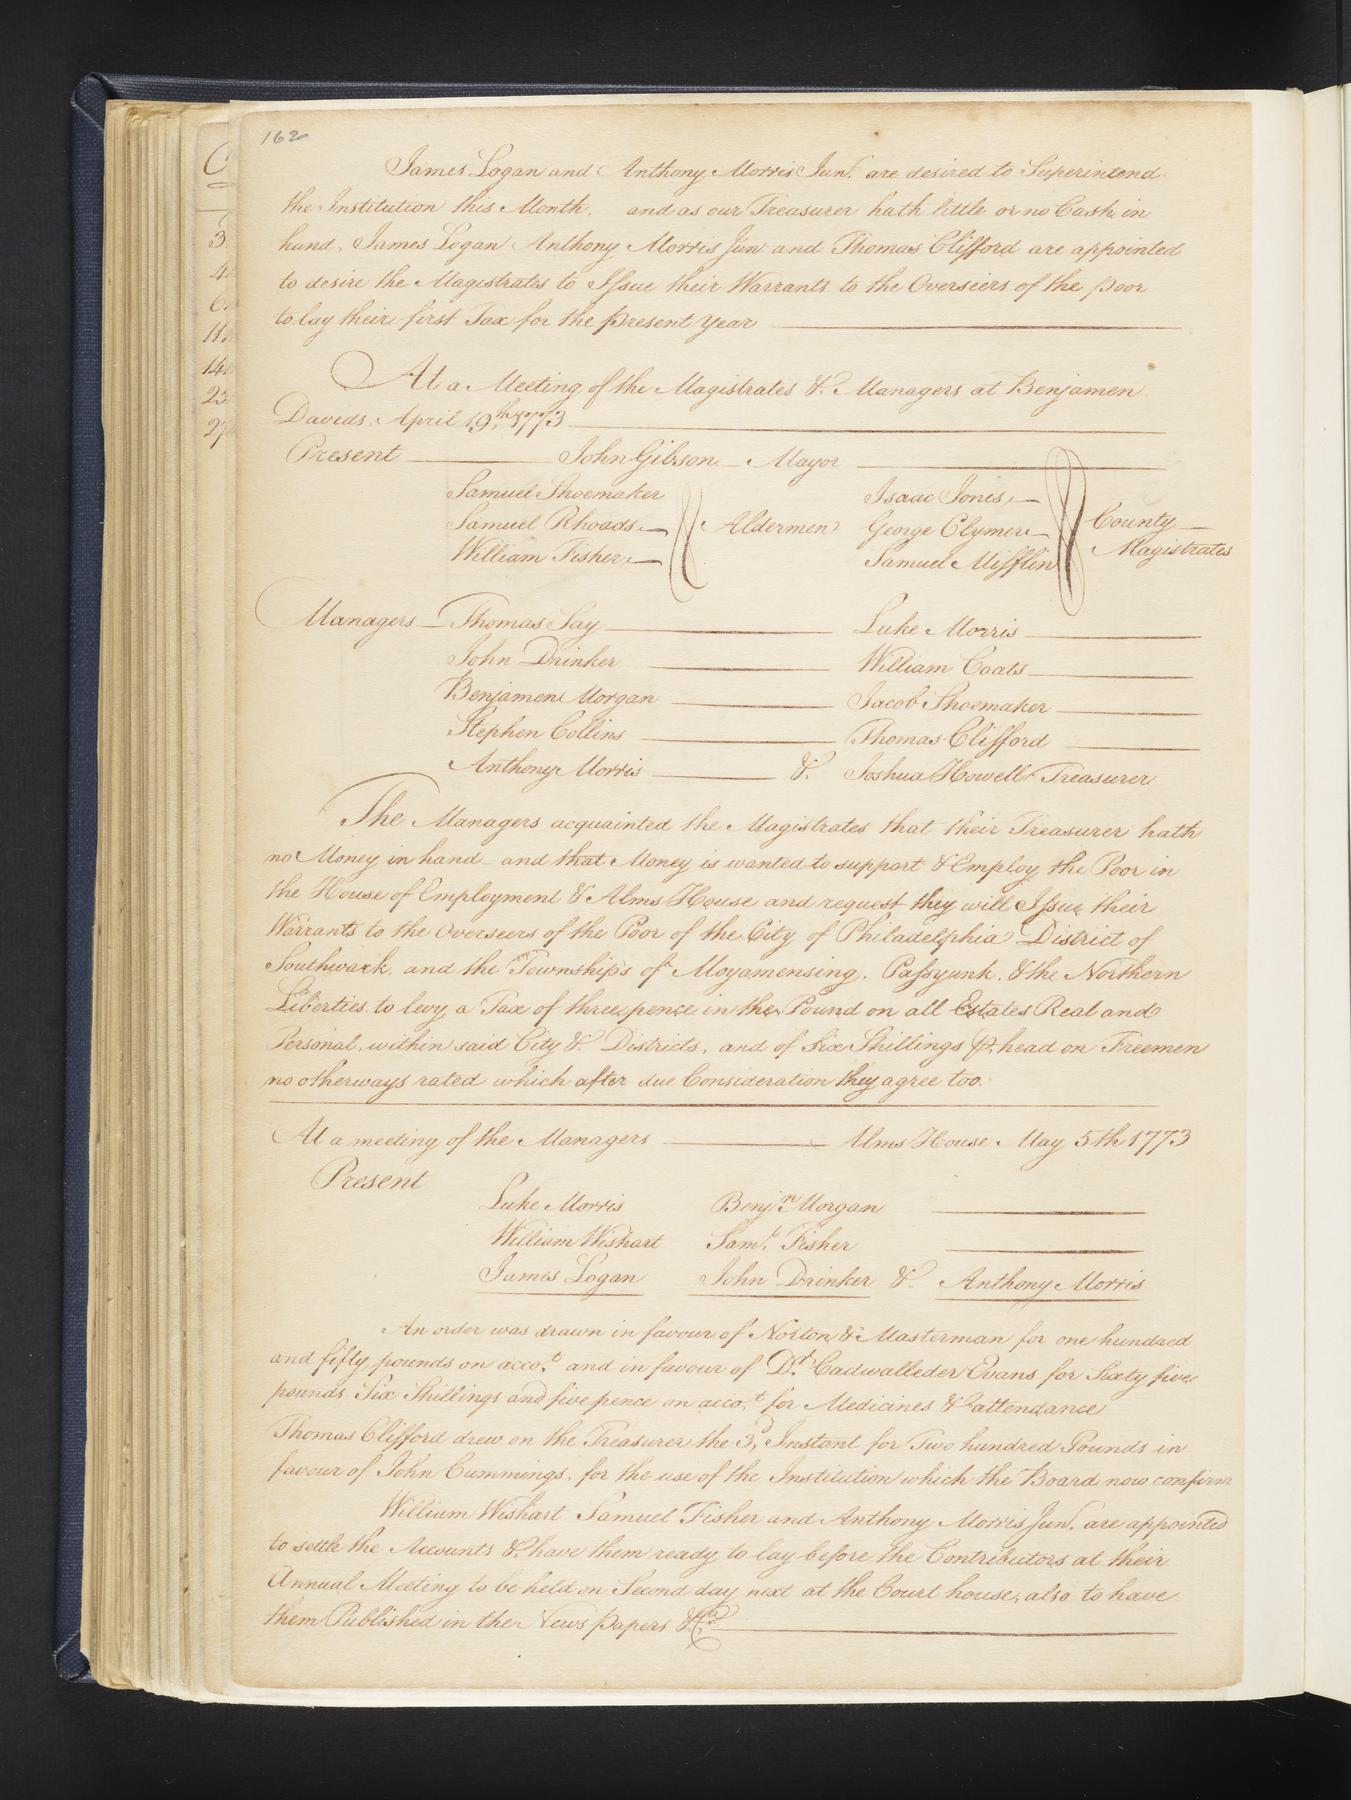 162
James Logan and Anthony Morris Junr. are desired to Superintend
the Institution this Month, and as our Treasurer hath little or no Cash in
hand, James Logan Anthony Morris Jun and Thomas Clifford are appointed
to desire the Magistrates to Issue their Warrants to the Overseers of the poor
to lay their first Tax for the present year
At a Meeting of the Magistrates &. Managers at Benjamen
Davids, April 19th, 1773
Present John Gibson Mayor
Samuel Shoemaker Isaac Jones
Samuel Rhoads Aldermen George Clymer County
William Fisher Samuel Mifflin Magistrates
Managers Thomas Say Luke Morris
John Drinker William Coats
Benjamen Morgan Jacob Shoemaker
Stephen Collins Thomas Clifford
Anthony Morris &. Joshua Howell Treasurer
The Managers acquainted the Magistrates that their Treasurer hath
no Money in hand and that Money is wanted to support & Employ the Poor in
the House of Employment & Alms House and request they will Issue their
Warrants to the Overseers of the Poor of the City of Philadelphia District of
Southwark, and the Township's of Moyamensing, Passyunk, & the Northern
Liberties to levy a Tax of three pence in the Pound on all Estates Real and
Personal, within said City &. Districts, and of Six Shillings ⅌ head on Freemen
no otherways rated which after due Consideration they agree too.
At a meeting of the Managers Alms House May 5th 1773
Present
Luke Morris Benjn. Morgan
William Wishart Saml. Fisher
James Logan John Drinker &. Anthony Morris
An order was drawn in favour of Norton & Masterman for one hundred
and fifty pounds on accot. and in favour of Dr. Cadwalleder Evans for Sixty five
pounds Six Shillings and five pence on accot. for Medicines & attendance
Thomas Clifford drew on the Treasurer the 3d, Instant for Two hundred Pounds in
favour of John Cummings, for the use of the Institution which the Board now confirm
William Wishart Samuel Fisher and Anthony Morris Jun. are appointed
to settle the Accounts &. have them ready to lay before the Contributors at their
Annual Meeting to be held on Second day next at the Court house, also to have
them Published in the News papers &c.